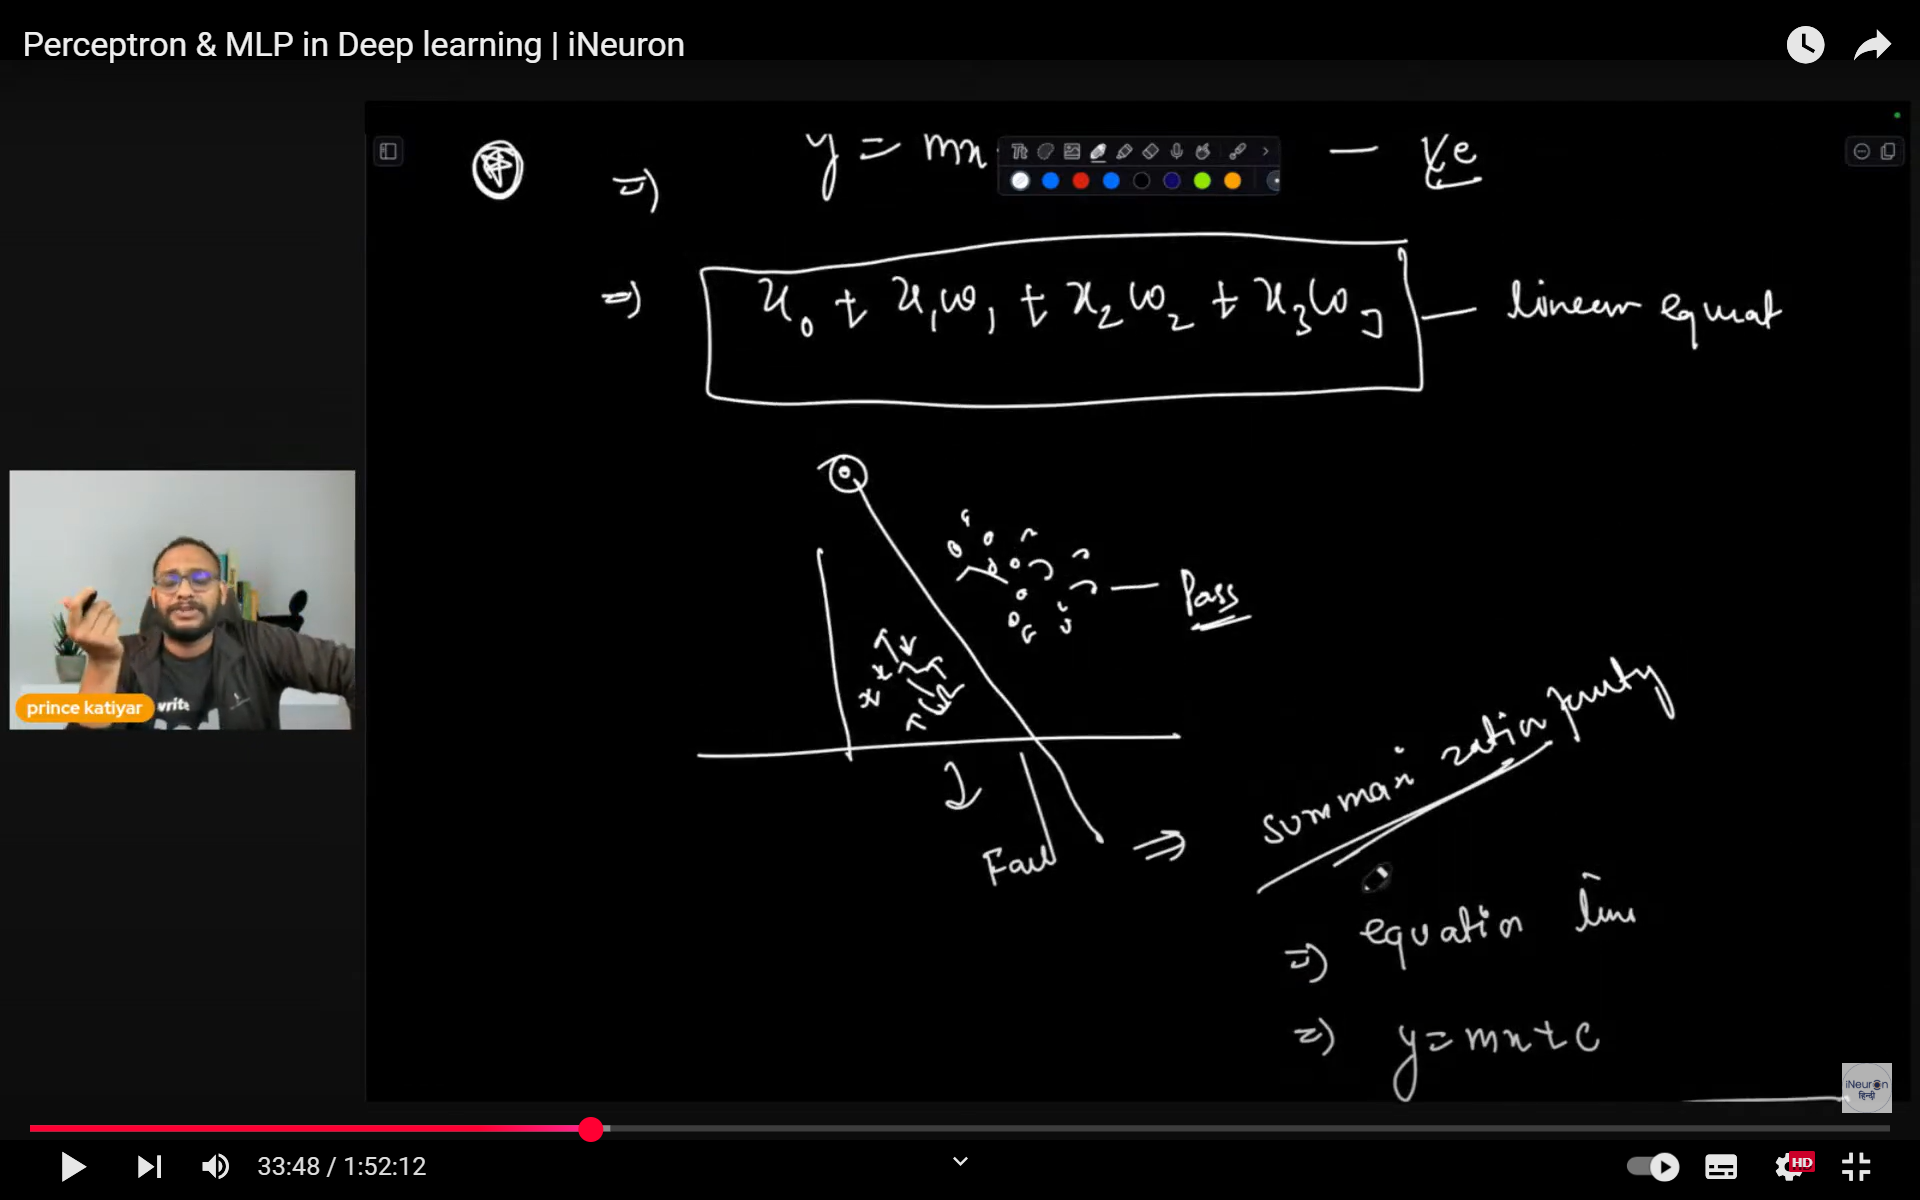 Perceptron & MLP in Deep learning | iNeuron
y = mx
— ve
=)
=) x₀ + x₁ω₁ + x₂ω₂ + x₃ω₃ — linear equat
— Pass
x x
Fail
=> summarization
=) equation line
=) y = mx + c
prince katiyar
write
iNeuron
हिन्दी
33:48 / 1:52:12
HD